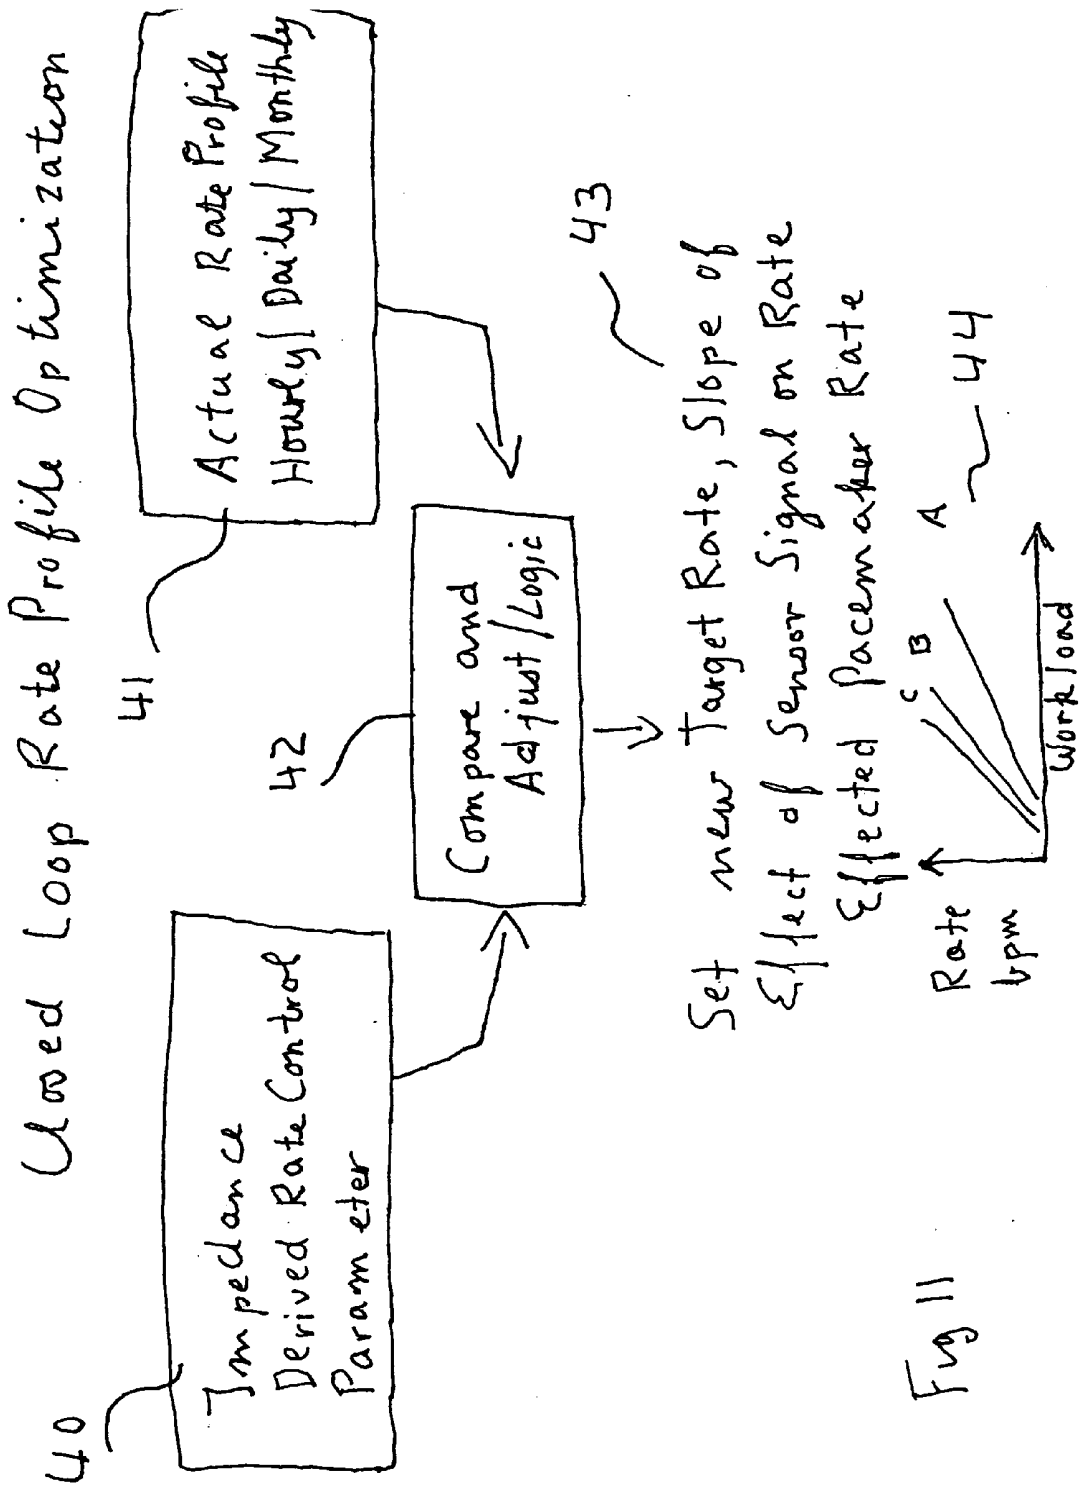 Closed Loop Rate Profile Optimization
40
Impedance
Derived Rate Control
Parameter
41
Actual Rate Profile
Hourly/Daily/Monthly
42
Compare and
Adjust/Logic
43
Set new Target Rate, Slope of
Effect of Sensor Signal on Rate
Effected Pacemaker Rate
Rate
bpm
C
B
A
44
Workload
Fig 11